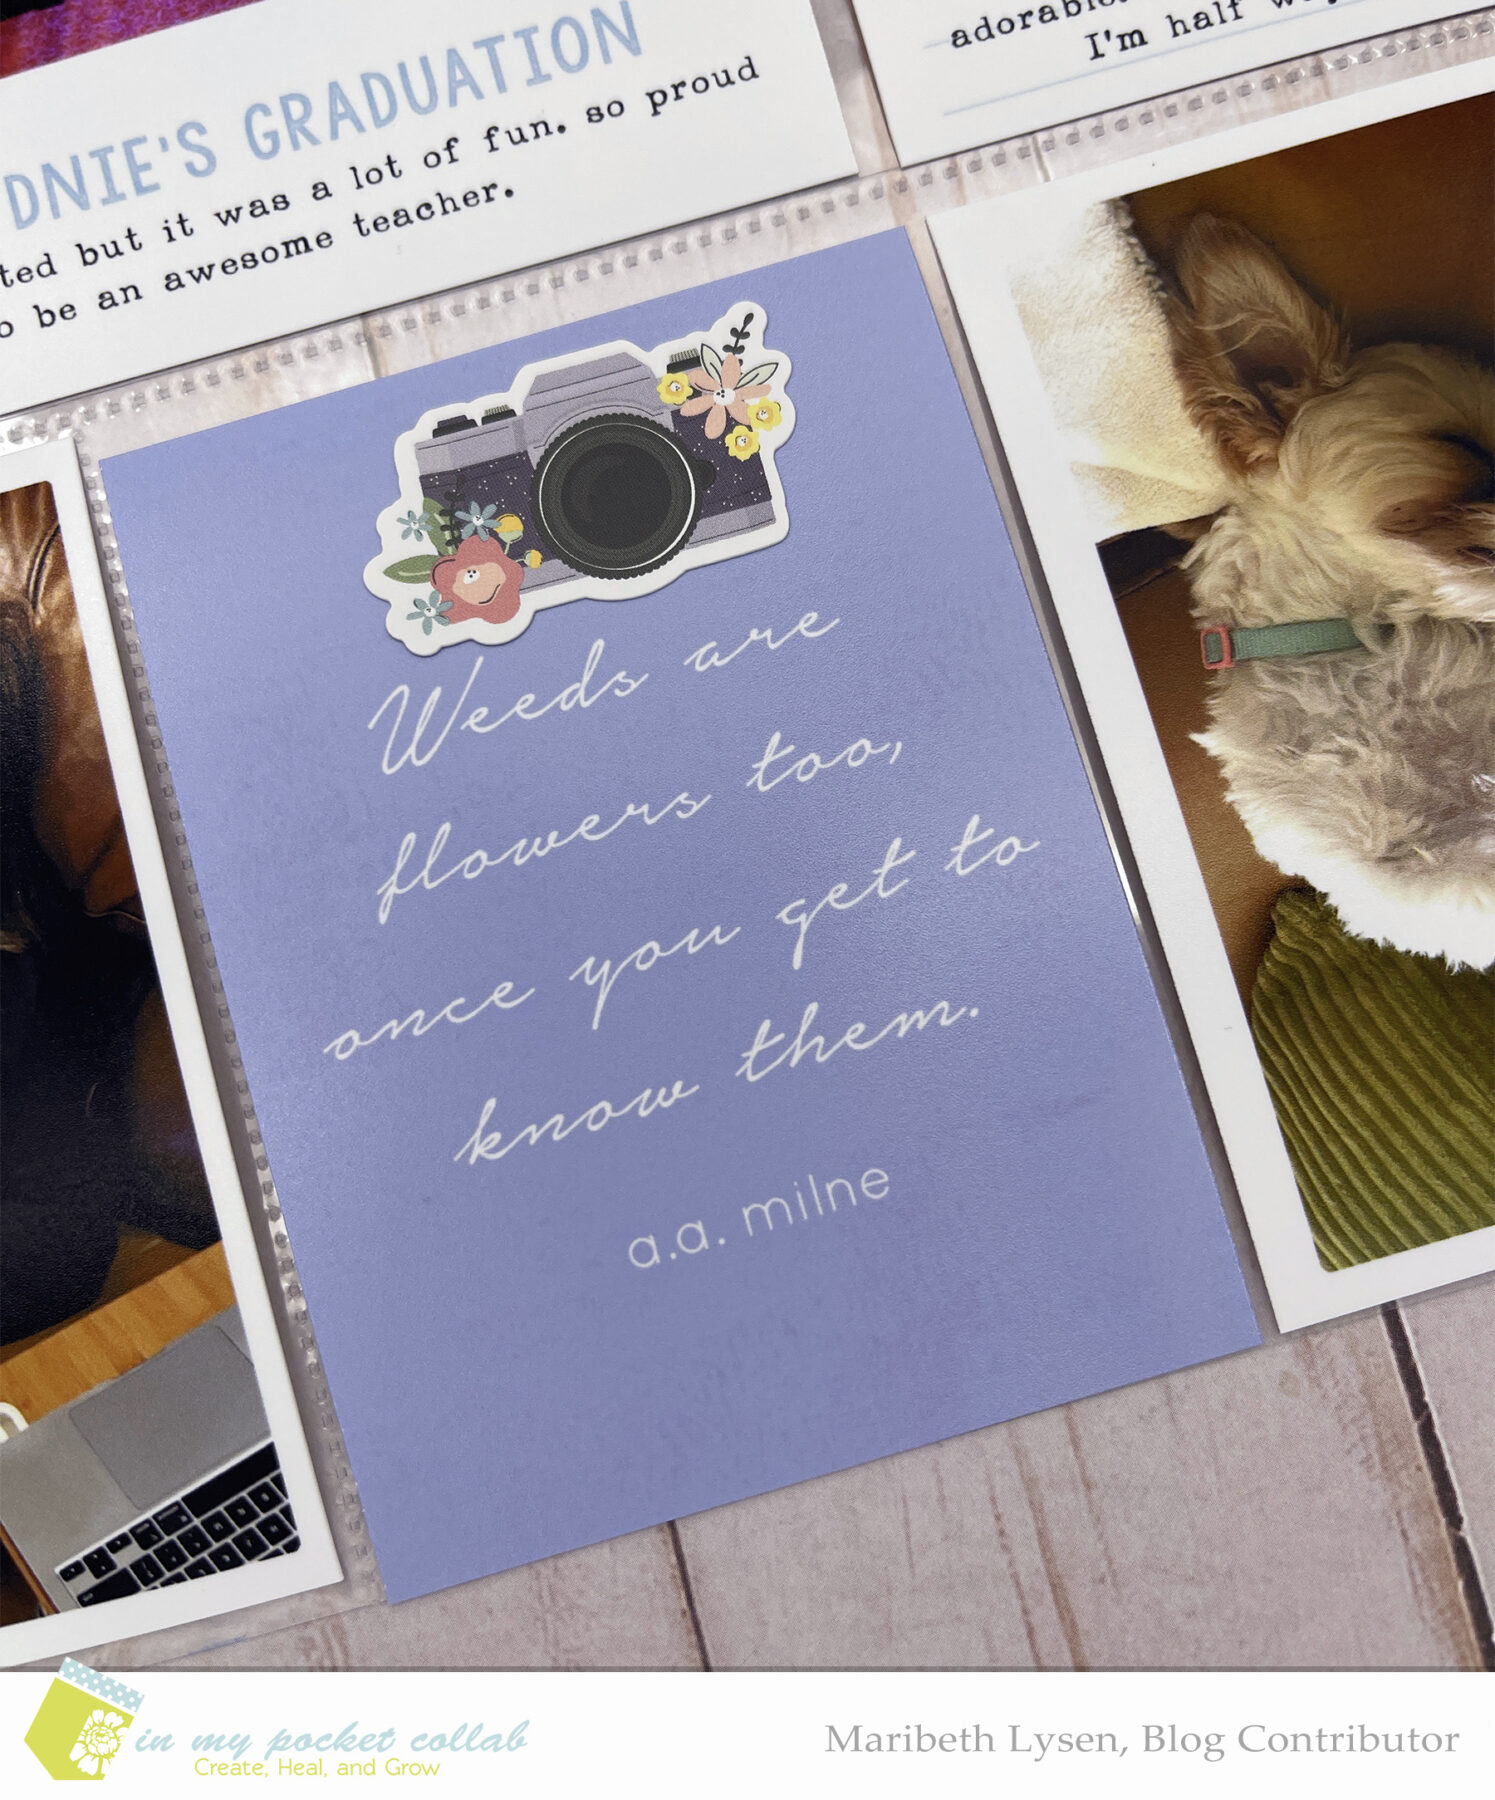 GRADUATION
but it was a lot of fun. so proud
be an awesome teacher.
I'm half
Weeds are
flowers too,
once you get to
know them.
a.a. milne
in my pocket collab
Create, Heal, and Grow
Maribeth Lysen, Blog Contributor